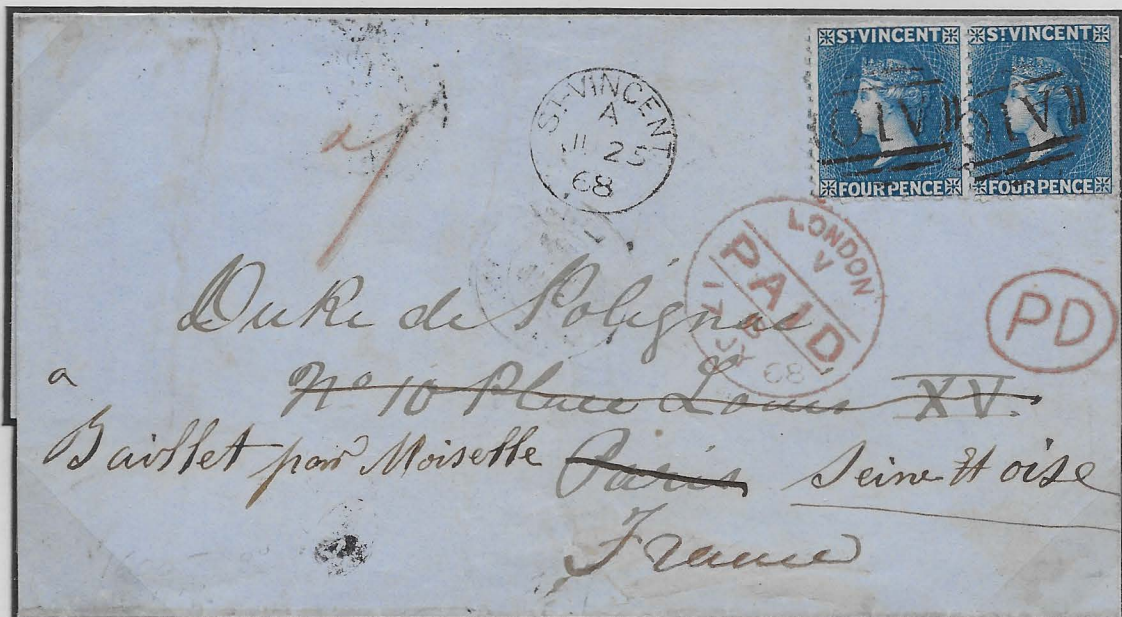 ST VINCENT ST VINCENT
FOUR PENCE FOUR PENCE
A10 A10
ST-VINCENT
A
JU 25
68
LONDON
V
PAID
17
JY
68
PD
Duke de Polignac
No 10 Place Louis XV.
a
Baillet par Moiselle Paris Seine et oise
France